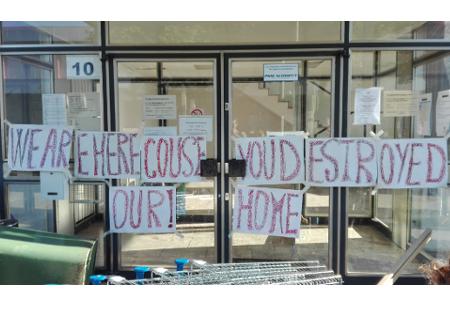 10
WE ARE HERE COUSE YOU DESTROYED
OUR! HOME